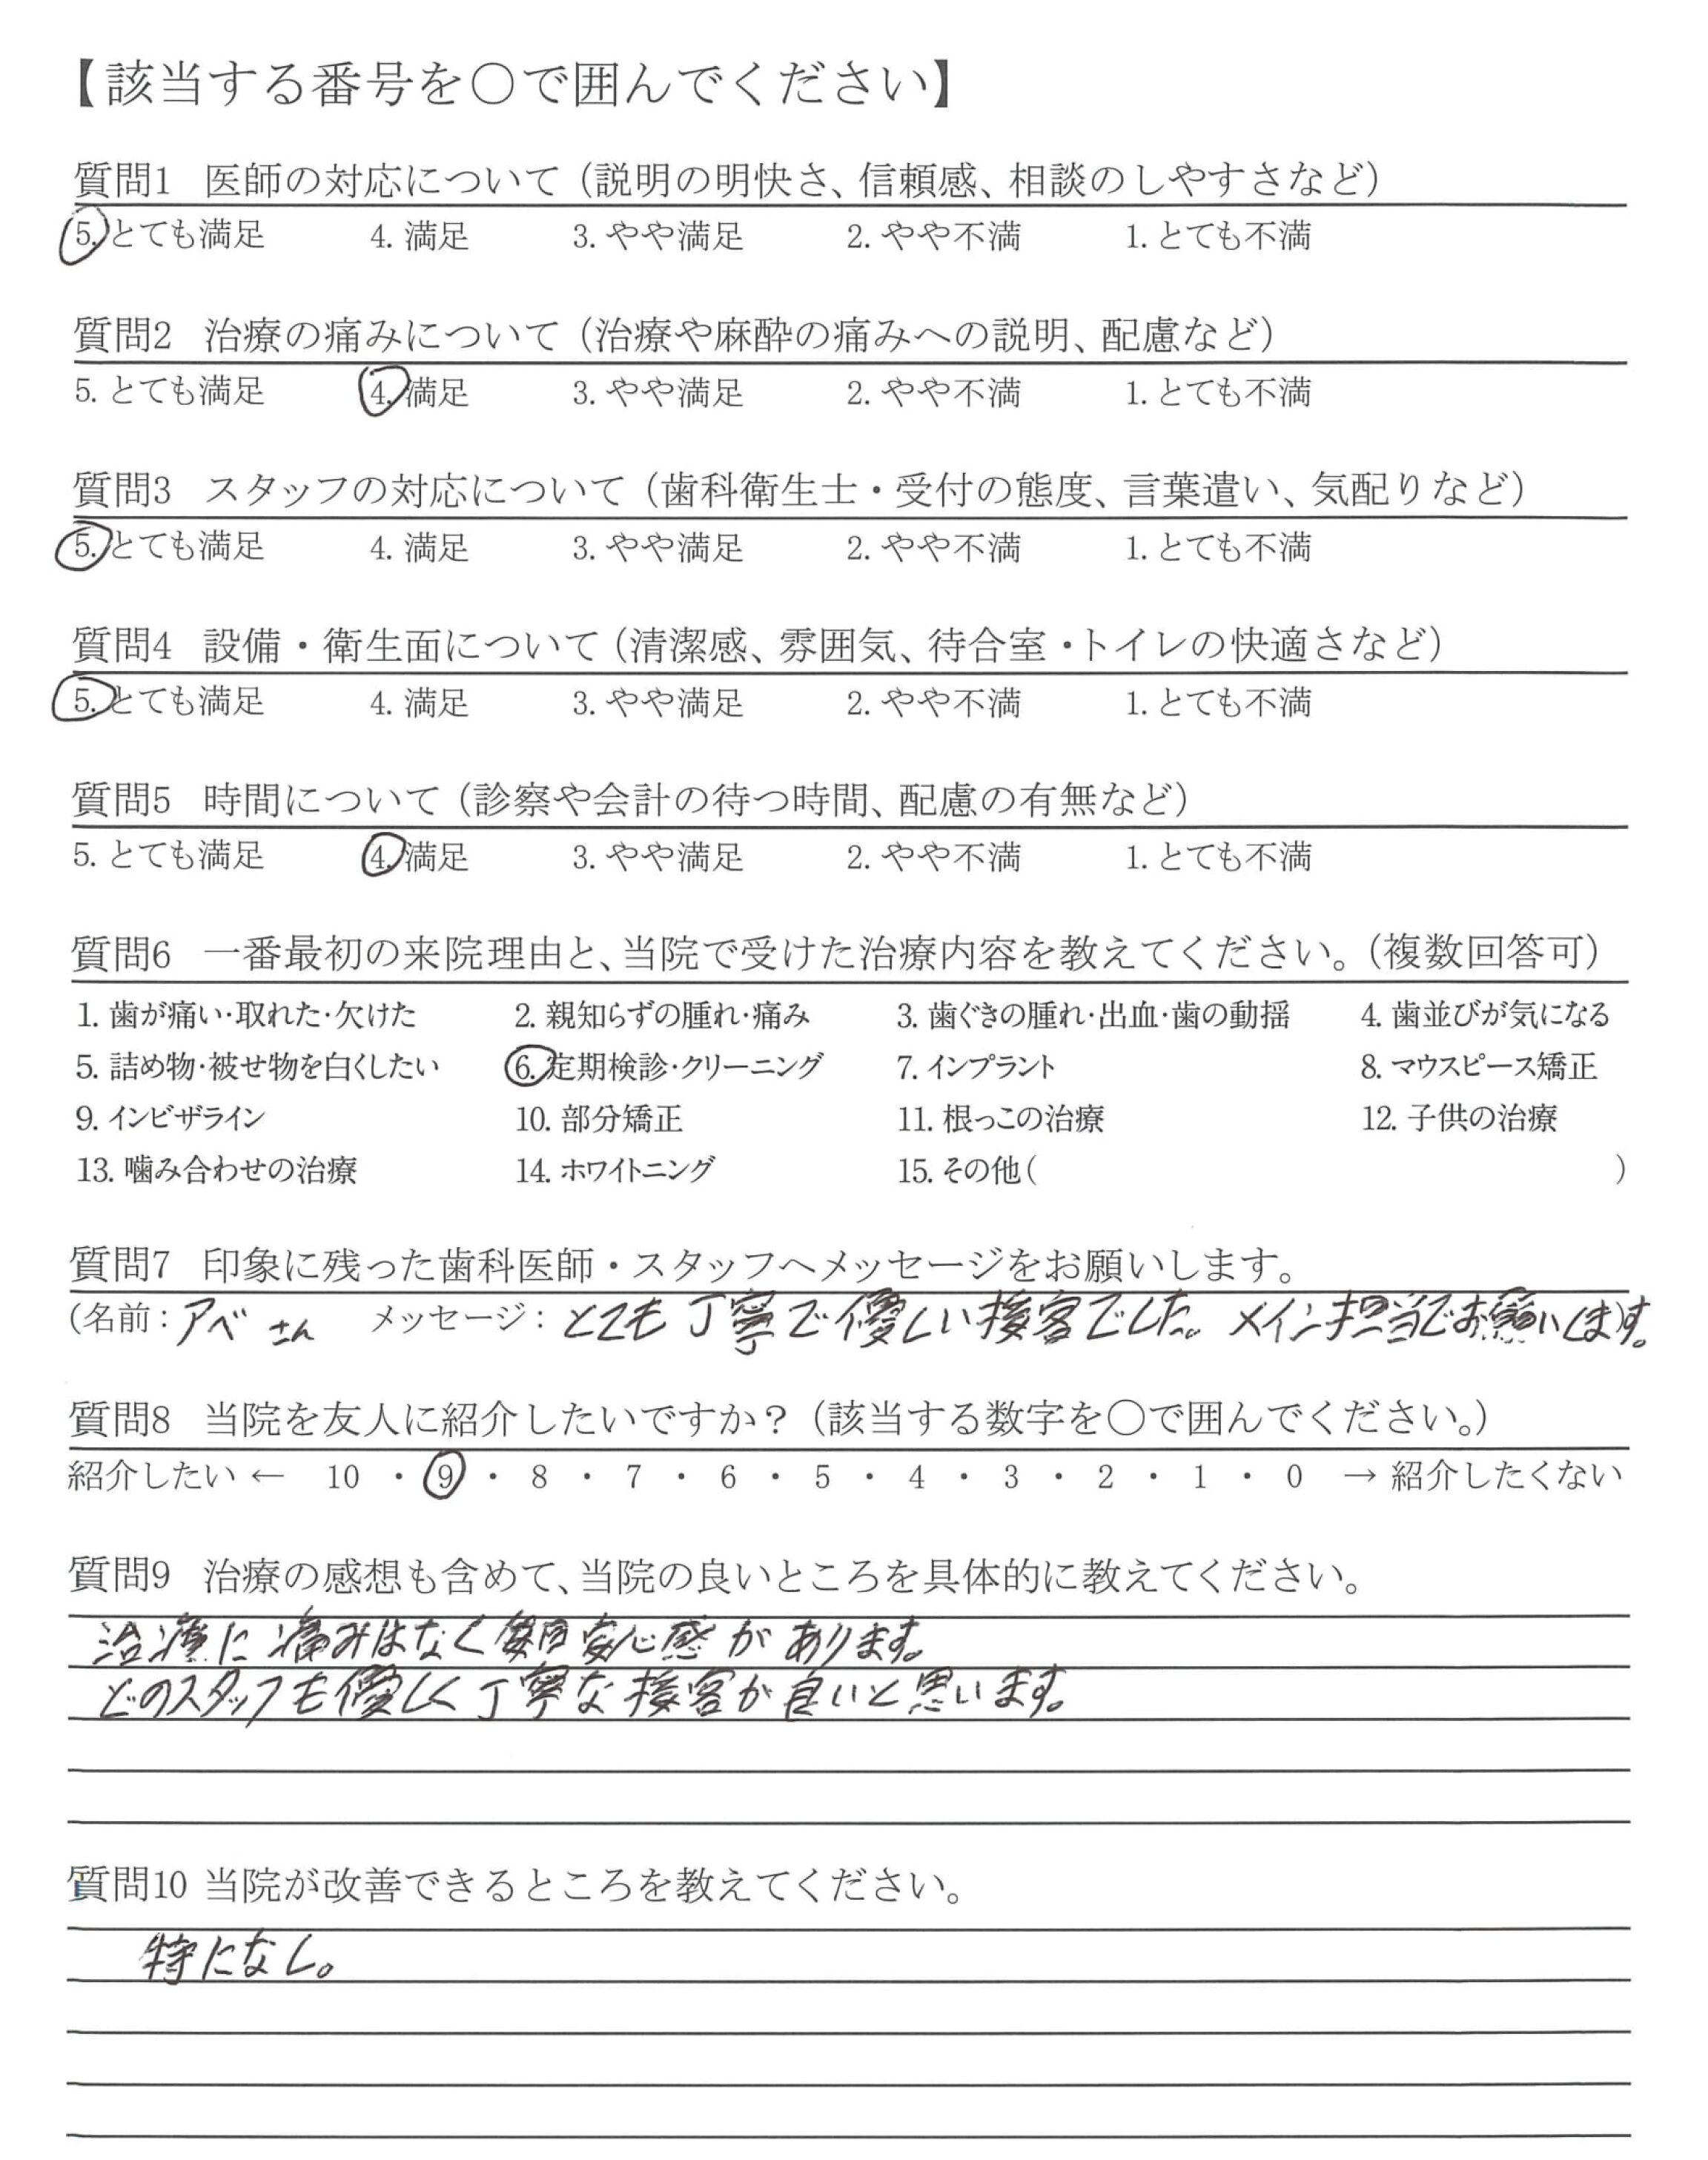 【該当する番号を○で囲んでください】
質問1 医師の対応について（説明の明快さ、信頼感、相談のしやすさなど）
5. とても満足 4. 満足 3. やや満足 2. やや不満 1. とても不満
質問2 治療の痛みについて（治療や麻酔の痛みへの説明、配慮など）
5. とても満足 4. 満足 3. やや満足 2. やや不満 1. とても不満
質問3 スタッフの対応について（歯科衛生士・受付の態度、言葉遣い、気配りなど）
5. とても満足 4. 満足 3. やや満足 2. やや不満 1. とても不満
質問4 設備・衛生面について（清潔感、雰囲気、待合室・トイレの快適さなど）
5. とても満足 4. 満足 3. やや満足 2. やや不満 1. とても不満
質問5 時間について（診察や会計の待つ時間、配慮の有無など）
5. とても満足 4. 満足 3. やや満足 2. やや不満 1. とても不満
質問6 一番最初の来院理由と、当院で受けた治療内容を教えてください。（複数回答可）
1. 歯が痛い・取れた・欠けた 2. 親知らずの腫れ・痛み 3. 歯ぐきの腫れ・出血・歯の動揺 4. 歯並びが気になる
5. 詰め物・被せ物を白くしたい 6. 定期検診・クリーニング 7. インプラント 8. マウスピース矯正
9. インビザライン 10. 部分矯正 11. 根っこの治療 12. 子供の治療
13. 噛み合わせの治療 14. ホワイトニング 15. その他（ ）
質問7 印象に残った歯科医師・スタッフへメッセージをお願いします。
（名前：アベさん メッセージ：とても丁寧で優しい接客でした。メイン担当でお願いします。
質問8 当院を友人に紹介したいですか？（該当する数字を○で囲んでください。）
紹介したい ← 10 ・ 9 ・ 8 ・ 7 ・ 6 ・ 5 ・ 4 ・ 3 ・ 2 ・ 1 ・ 0 → 紹介したくない
質問9 治療の感想も含めて、当院の良いところを具体的に教えてください。
治療に痛みはなく毎回安心感があります。
どのスタッフも優しく丁寧な接客が良いと思います。
質問10 当院が改善できるところを教えてください。
特になし。